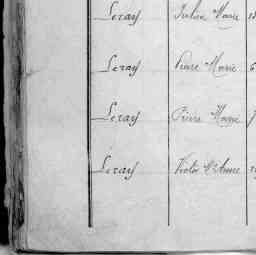 Leray Julien Marie
Leray Pierre Marie 6
Leray Pierre Marie
Leray Victor Ste Anne